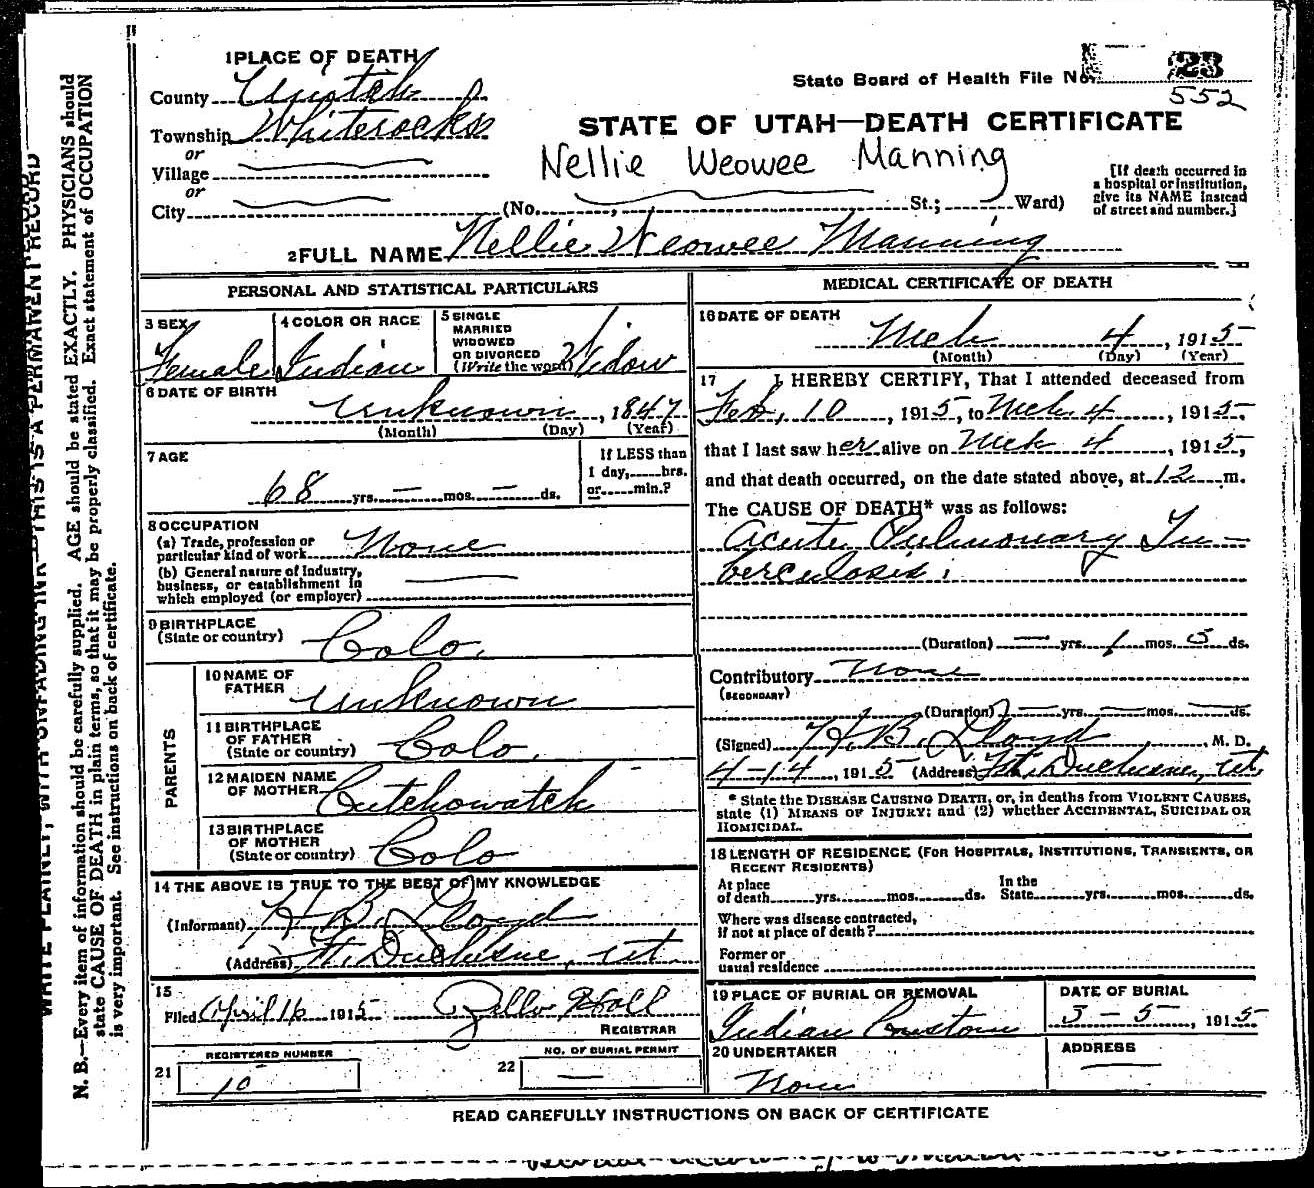 1 PLACE OF DEATH
State Board of Health File No. 23
552
County Uintah
Township Whiterocks
or
Village
or
City (No. , St.; Ward)
STATE OF UTAH—DEATH CERTIFICATE
Nellie Weowee Manning
[If death occurred in
a hospital or institution,
give its NAME instead
of street and number.]
2 FULL NAME Nellie Weowee Manning
PERSONAL AND STATISTICAL PARTICULARS
3 SEX
Female
4 COLOR OR RACE
Indian
5 SINGLE
MARRIED
WIDOWED
OR DIVORCED
(Write the word) Widow
6 DATE OF BIRTH
Unknown, 1847
(Month) (Day) (Year)
7 AGE
68 yrs. — mos. — ds.
If LESS than
1 day, hrs.
or min.?
8 OCCUPATION
(a) Trade, profession or
particular kind of work None
(b) General nature of industry,
business, or establishment in
which employed (or employer) —
9 BIRTHPLACE
(State or country) Colo.
PARENTS
10 NAME OF
FATHER Unknown
11 BIRTHPLACE
OF FATHER
(State or country) Colo.
12 MAIDEN NAME
OF MOTHER Cutchowatch
13 BIRTHPLACE
OF MOTHER
(State or country) Colo
14 THE ABOVE IS TRUE TO THE BEST OF MY KNOWLEDGE
(Informant) H. B. Lloyd
(Address) Ft. Duchesne, Ut.
15
Filed April 16 1915 Hall
REGISTRAR
REGISTERED NUMBER
21 10
NO. OF BURIAL PERMIT
22 —
MEDICAL CERTIFICATE OF DEATH
16 DATE OF DEATH
Mch 4, 1915
(Month) (Day) (Year)
17 I HEREBY CERTIFY, That I attended deceased from
Feb, 10, 1915, to Mch 4, 1915,
that I last saw her alive on Mch 4, 1915,
and that death occurred, on the date stated above, at 12 m.
The CAUSE OF DEATH* was as follows:
Acute Pulmonary Tu-
berculosis;
(Duration) — yrs. 1 mos. 5 ds.
Contributory None
(SECONDARY)
(Duration) — yrs. — mos. — ds.
(Signed) H. B. Lloyd, M. D.
4-14, 1915 (Address) Ft. Duchesne, Ut.
* State the DISEASE CAUSING DEATH, or, in deaths from VIOLENT CAUSES,
state (1) MEANS OF INJURY; and (2) whether ACCIDENTAL, SUICIDAL OR
HOMICIDAL.
18 LENGTH OF RESIDENCE (FOR HOSPITALS, INSTITUTIONS, TRANSIENTS, OR
RECENT RESIDENTS)
At place
of death yrs. mos. ds.
In the
State yrs. mos. ds.
Where was disease contracted,
if not at place of death?
Former or
usual residence
19 PLACE OF BURIAL OR REMOVAL
Indian Custom
DATE OF BURIAL
3-5-, 1915
20 UNDERTAKER
None
ADDRESS
—
READ CAREFULLY INSTRUCTIONS ON BACK OF CERTIFICATE
WRITE PLAINLY, WITH UNFADING INK—THIS IS A PERMANENT RECORD
N. B.—Every item of information should be carefully supplied. AGE should be stated EXACTLY. PHYSICIANS should
state CAUSE OF DEATH in plain terms, so that it may be properly classified. Exact statement of OCCUPATION
is very important. See instructions on back of certificate.